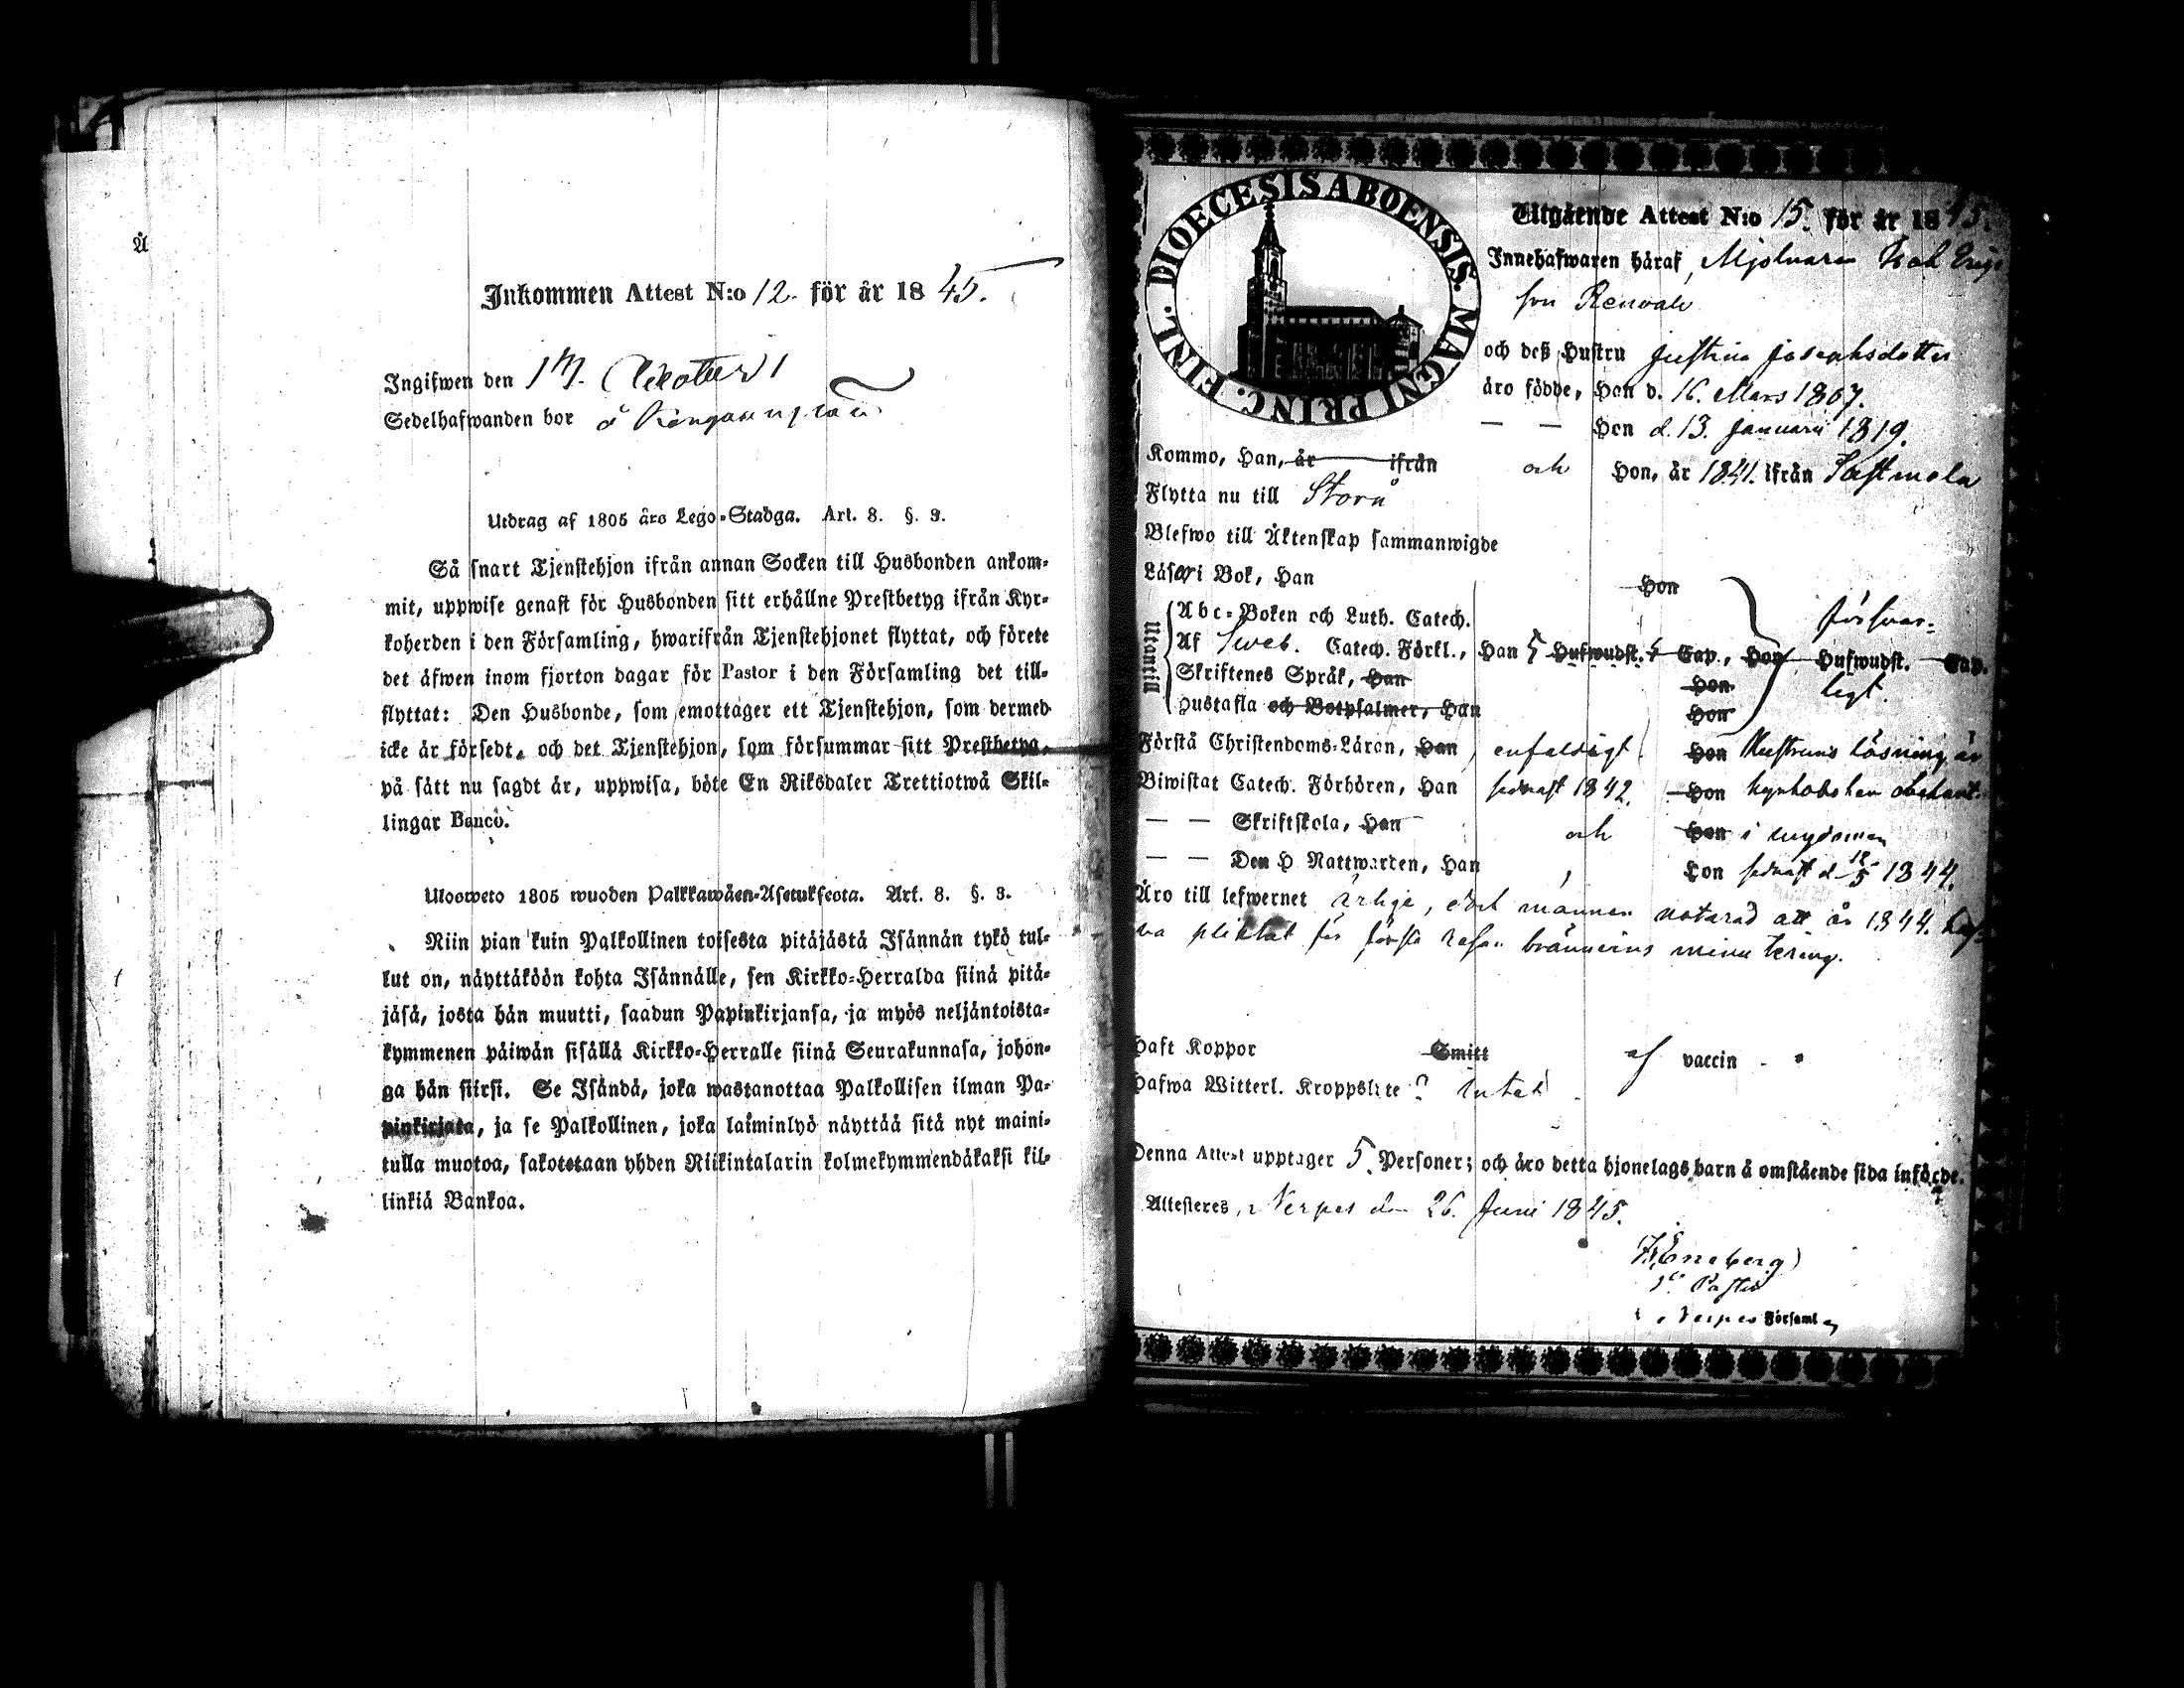 Å
Inkommen Attest N:o 12. för år 1845.
Ingifwen den
Sedelhafwanden bor å
Utdrag af 1805 års Lego-Stadga. Art. 8. §. 3.
Så snart Tjenstehjon ifrån annan Socken till Husbonden ankom-
mit, uppwise genast för Husbonden sitt erhållne Prestbetyg ifrån Kyr-
koherden i den Församling, hwarifrån Tjenstehjonet flyttat, och förete
det äfwen inom fjorton dagar för Pastor i den Församling det till-
flyttat: Den Husbonde, som emottager ett Tjenstehjon, som dermed
icke är försedt, och det Tjenstehjon, som försummar sitt Prestbetyg,
på sätt nu sagdt är, uppwisa, böte En Riksdaler Trettiotwå Skil-
lingar Banco.
Ulosweto 1805 wuoden Palkkawäen-Asetuksesta. Art. 8. §. 3.
Niin pian kuin Palkollinen toisesta pitäjästä Isännän tykö tul-
lut on, näyttäköön kohta Isännälle, sen Kirkko-Herralda siinä pitä-
jäsä, josta hän muutti, saadun Papinkirjansa, ja myös neljäntoista-
kymmenen päiwän sisällä Kirkko-Herralle siinä Seurakunnasa, johon-
ga hän siirsi. Se Isändä, joka wastanottaa Palkollisen ilman Pa-
pinkirjata, ja se Palkollinen, joka laiminlyö näyttää sitä nyt maini-
tulla muotoa, sakotetaan yhden Riikintalarin kolmekymmendäkaksi kil-
linkiä Bankoa.
DIOECESIS ABOENSIS. MAGNI PRINC. FINL.
Utgående Attest N:o 15. för år 1845.
Innehafwaren häraf, Mjolnaren Isak Erics
son Renvall
och deß Hustru Justina Josephsdotter
äro födde, Han d. 16. Mars 1807.
— — Hon d. 13. Januarii 1819.
Kommo, Han, år ifrån och Hon, år 1841. ifrån Sastmola
Flytta nu till Storå
Blefwo till Äktenskap sammanwigde
Läser i Bok, Han Hon
Utantill
Abc-Boken och Luth. Catech. försvar-
Af Sweb. Catech. Förkl., Han 5 Hufwudst. Cap., Hon Hufwudst. Cap.
Skriftenes Språk, Han Hon ligt
Hustafla och Botpsalmer, Han Hon
Förstå Christendoms-Läran, Han enfaldigt Hon Hustruns läsning är
Biwistat Catech. Förhören, Han sednast 1842. Hon
— — Skriftskola, Han och Hon i ungdomen
— — Den H Nattwarden, Han Hon sednast d 12/5 1844.
Äro till lefwernet ärliga, dock mannen noterad att år 1844. haf-
va pliktat för första resan brännvins minutering.
Haft Koppor Smitt af vaccin
Hafwa Witterl. Kroppslyte? Intet
Denna Attest upptager 5. Personer; och äro detta hjonelags barn å omstående sida införde.
Attesteres, Nerpes den 26. Juni 1845.
Pastor
Nerpes Församl